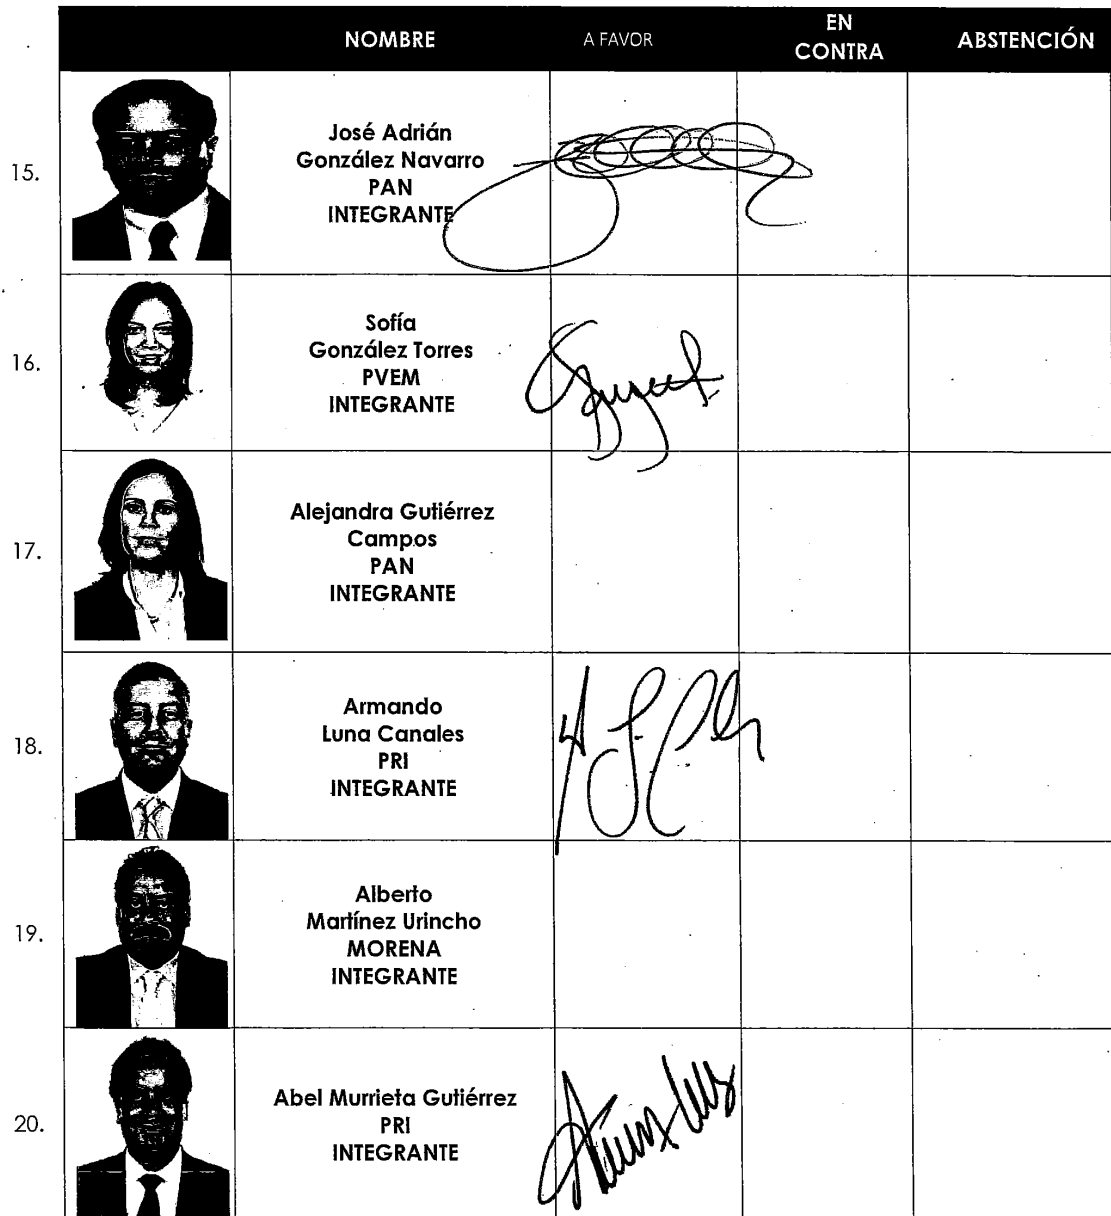 NOMBRE A FAVOR EN CONTRA ABSTENCIÓN
15.
José Adrián
González Navarro
PAN
INTEGRANTE
16.
Sofía
González Torres
PVEM
INTEGRANTE
17.
Alejandra Gutiérrez
Campos
PAN
INTEGRANTE
18.
Armando
Luna Canales
PRI
INTEGRANTE
19.
Alberto
Martínez Urincho
MORENA
INTEGRANTE
20.
Abel Murrieta Gutiérrez
PRI
INTEGRANTE